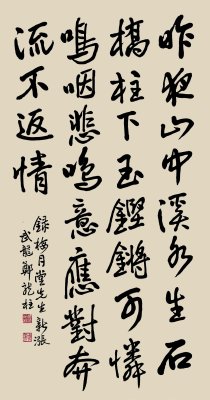 昨夜山中溪水生石
橋柱下玉鏗鏘可憐
嗚咽悲鳴意應對奔
流不返情
錄梅月堂先生新漲
武龍鄭龍柱